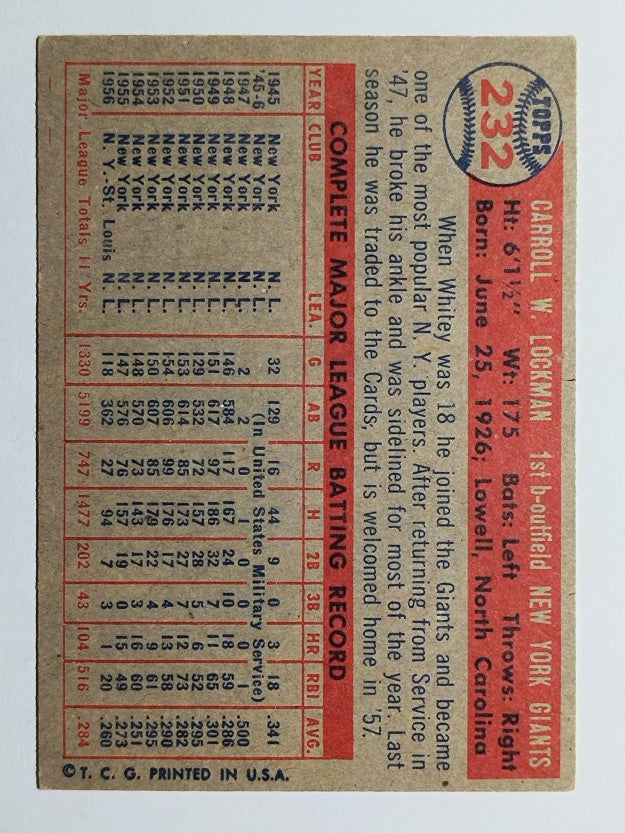 TOPPS
232
CARROLL W. LOCKMAN 1st b-outfield NEW YORK GIANTS
Ht: 6'1½" Wt: 175 Bats: Left Throws: Right
Born: June 25, 1926; Lowell, North Carolina
When Whitey was 18 he joined the Giants and became
one of the most popular N. Y. players. After returning from Service in
'47, he broke his ankle and was sidelined for most of the year. Last
season he was traded to the Cards, but is welcomed home in '57.
COMPLETE MAJOR LEAGUE BATTING RECORD
YEAR CLUB LEA. G AB R H 2B 3B HR RBI AVG.
1945 New York N. L. 32 129 16 44 9 0 3 18 .341
'45-6 (In United States Military Service)
1947 New York N. L. 2 2 0 1 0 0 0 1 .500
1948 New York N. L. 146 584 117 167 24 10 18 59 .286
1949 New York N. L. 151 617 97 186 32 7 11 65 .301
1950 New York N. L. 129 532 72 157 28 5 6 52 .295
1951 New York N. L. 153 614 85 173 27 7 12 73 .282
1952 New York N. L. 154 606 99 176 17 4 13 58 .290
1953 New York N. L. 150 607 85 179 22 4 9 61 .295
1954 New York N. L. 148 570 73 143 17 3 16 60 .251
1955 New York N. L. 147 576 76 157 19 0 15 49 .273
1956 N. Y.-St. Louis N. L. 118 362 27 94 7 3 1 20 .260
Major League Totals 11 Yrs. 1330 5199 747 1477 202 43 104 516 .284
© T. C. G. PRINTED IN U.S.A.